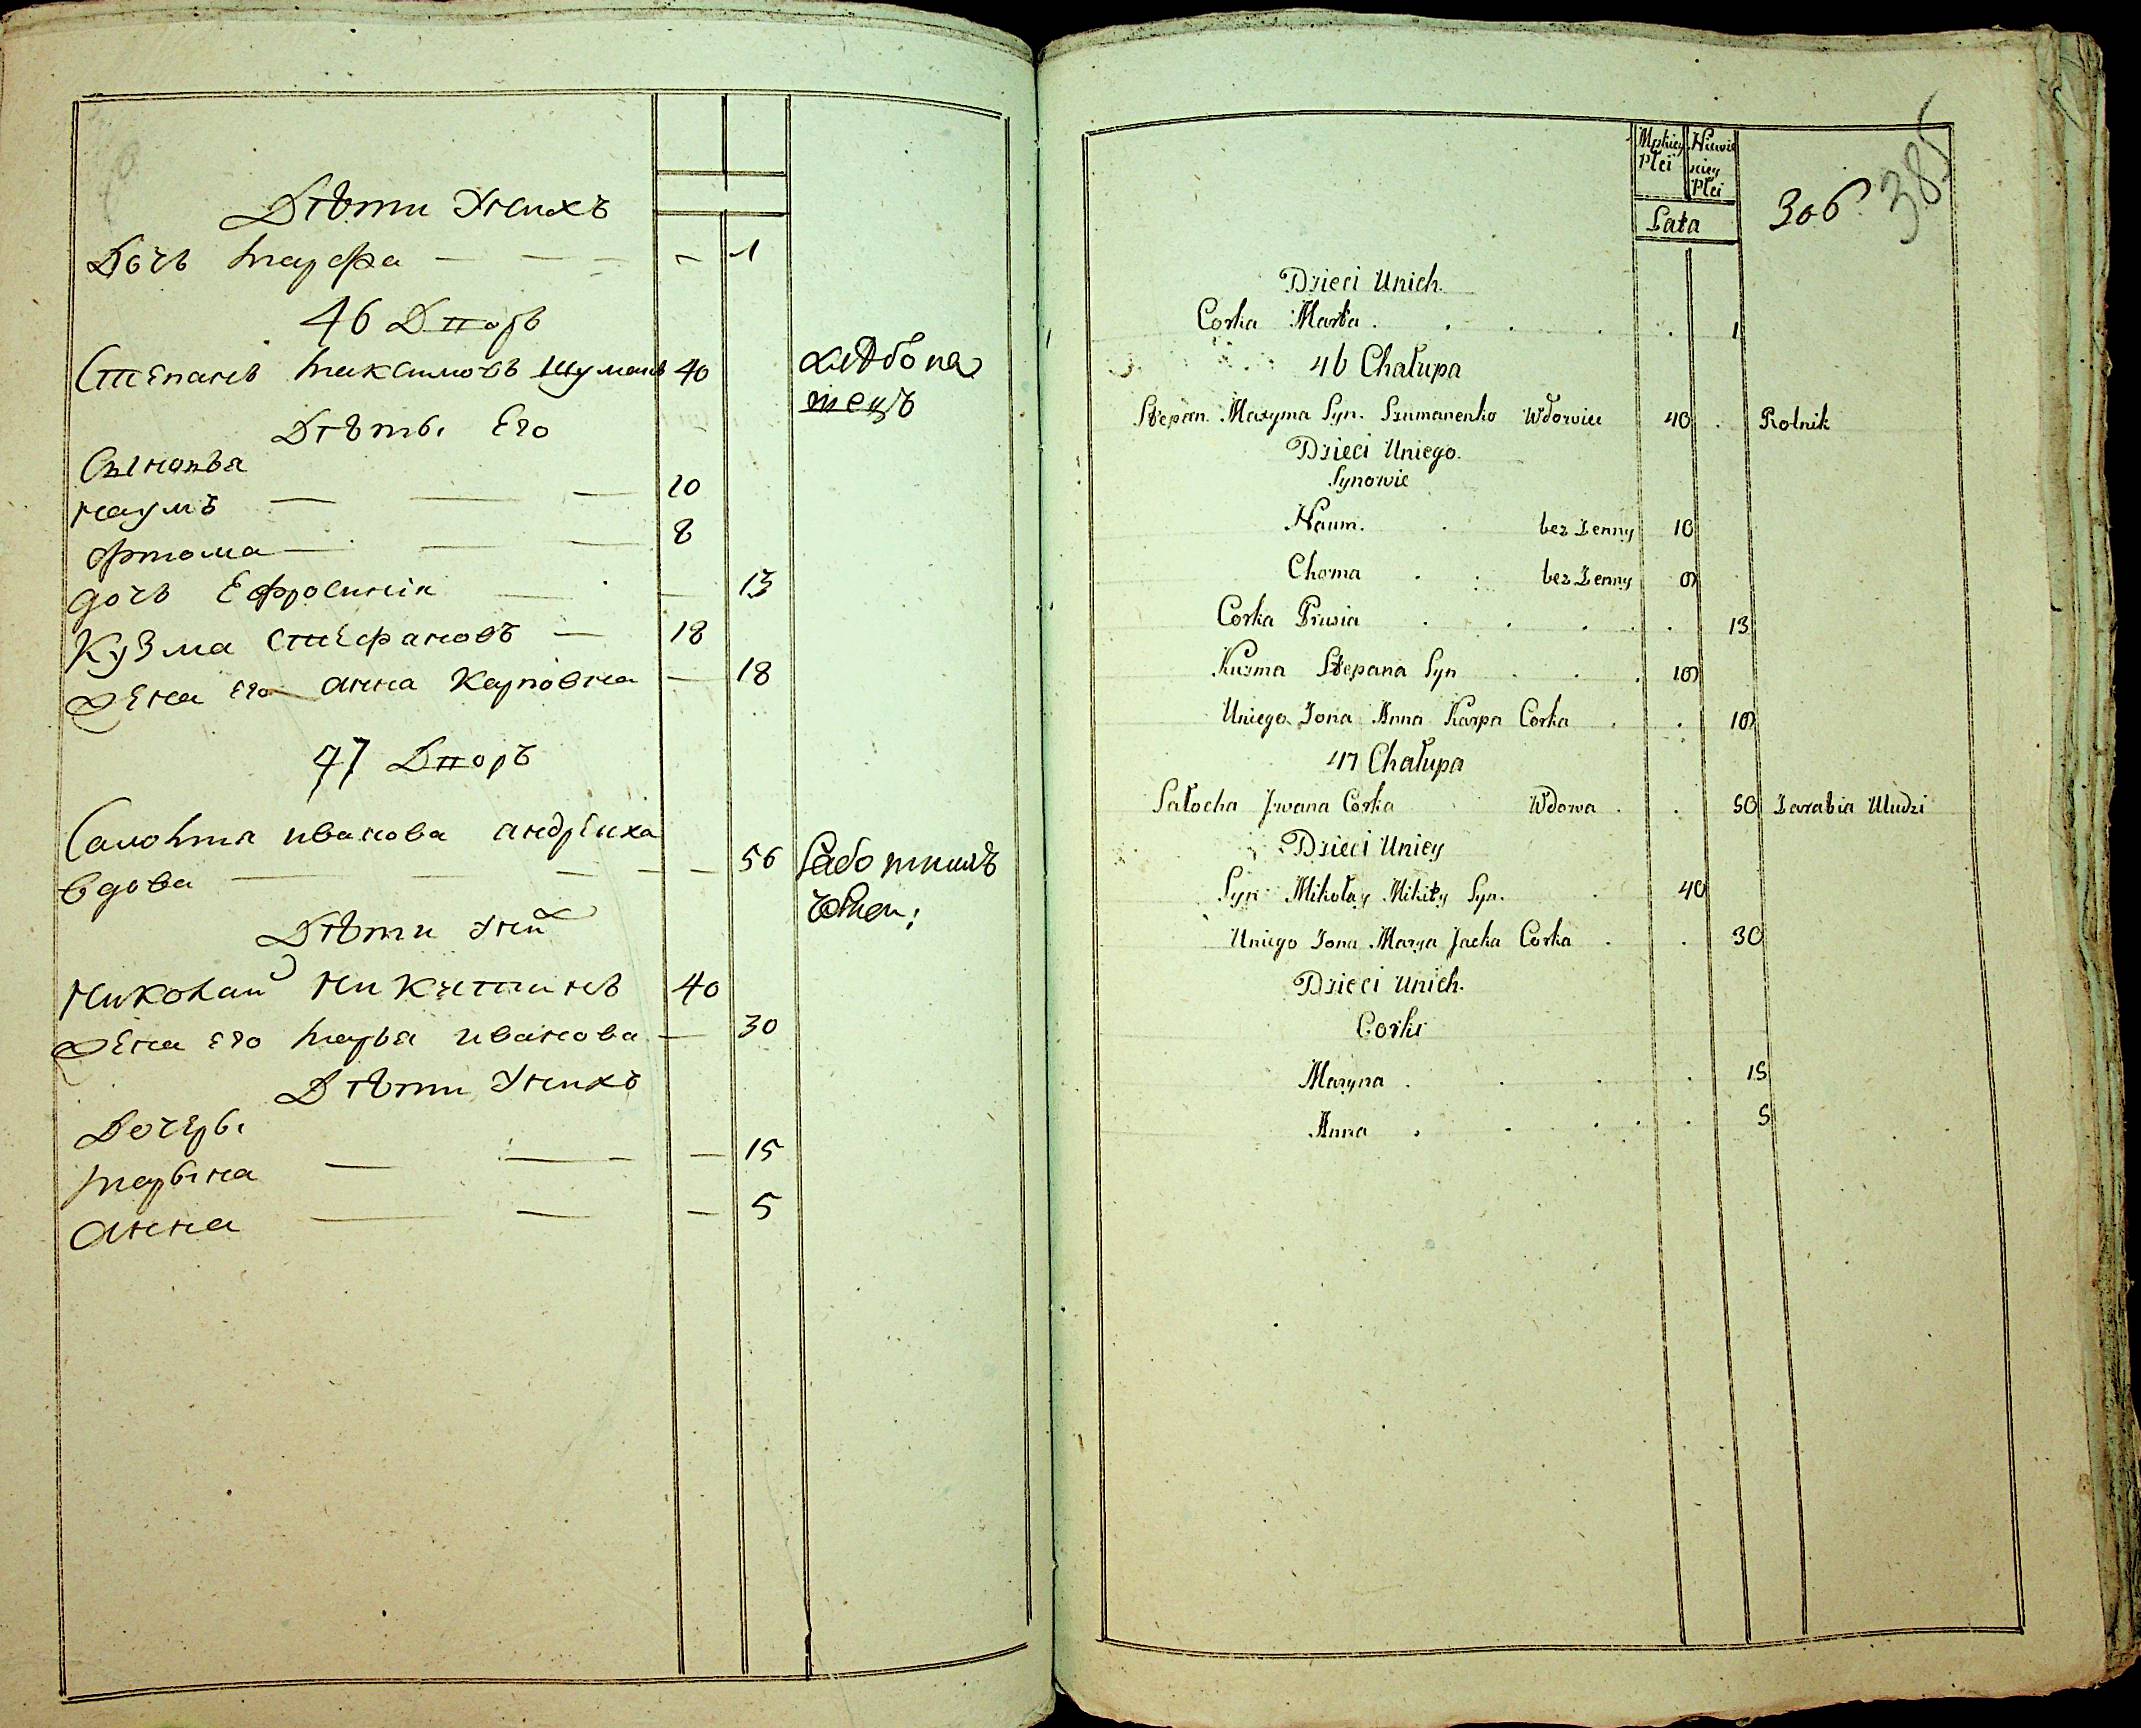 Дѣти Унихъ
Дочь марфа — — — — 1
46 Дворъ
Степанъ максимовъ Шуманъ 40 хлѣбопа
шецъ
Дѣты Его
Сыновья
наумъ — — — 10
фтома — — — 8
дочь Ефросинія — — 13
Кузма Стефановъ — 18
жена его анна Карповна — 18
47 Дворъ
Саломія иванова андрѣиха
вдова — — — — — 56 работниц
Дѣти Уней
николай никитинъ 40
жена его марья иванова — 30
Дѣти Унихъ
Дочеры
марына — — — — 15
анна — — — 5
Męskiey Płci Niewieściey Płci
306 385
Lata
Dzieci Unich.
Corka Marta . . . . . 1
46 Chałupa
Stepan Maxyma Syn. Szumanenko Wdowiec 40 . Rolnik
Dzieci Uniego.
Synowie
Naum. . bez Zenny 10
Choma . . bez Zenny 8
Corka Prusia . . . . . 13
Kuzma Stepana Syn . . . 18
Uniego Zona Anna Karpa Corka . . 18
47 Chałupa
Sałocha Jwana Corka Wdowa . . 50 Zarabia Uludzi
Dzieci Uniey
Syn Mikołay Mikity Syn. . 40
Uniego Zona Marya Jacka Corka . . 30
Dzieci Unich.
Corki
Maryna . . . . 15
Anna . . . . . 5